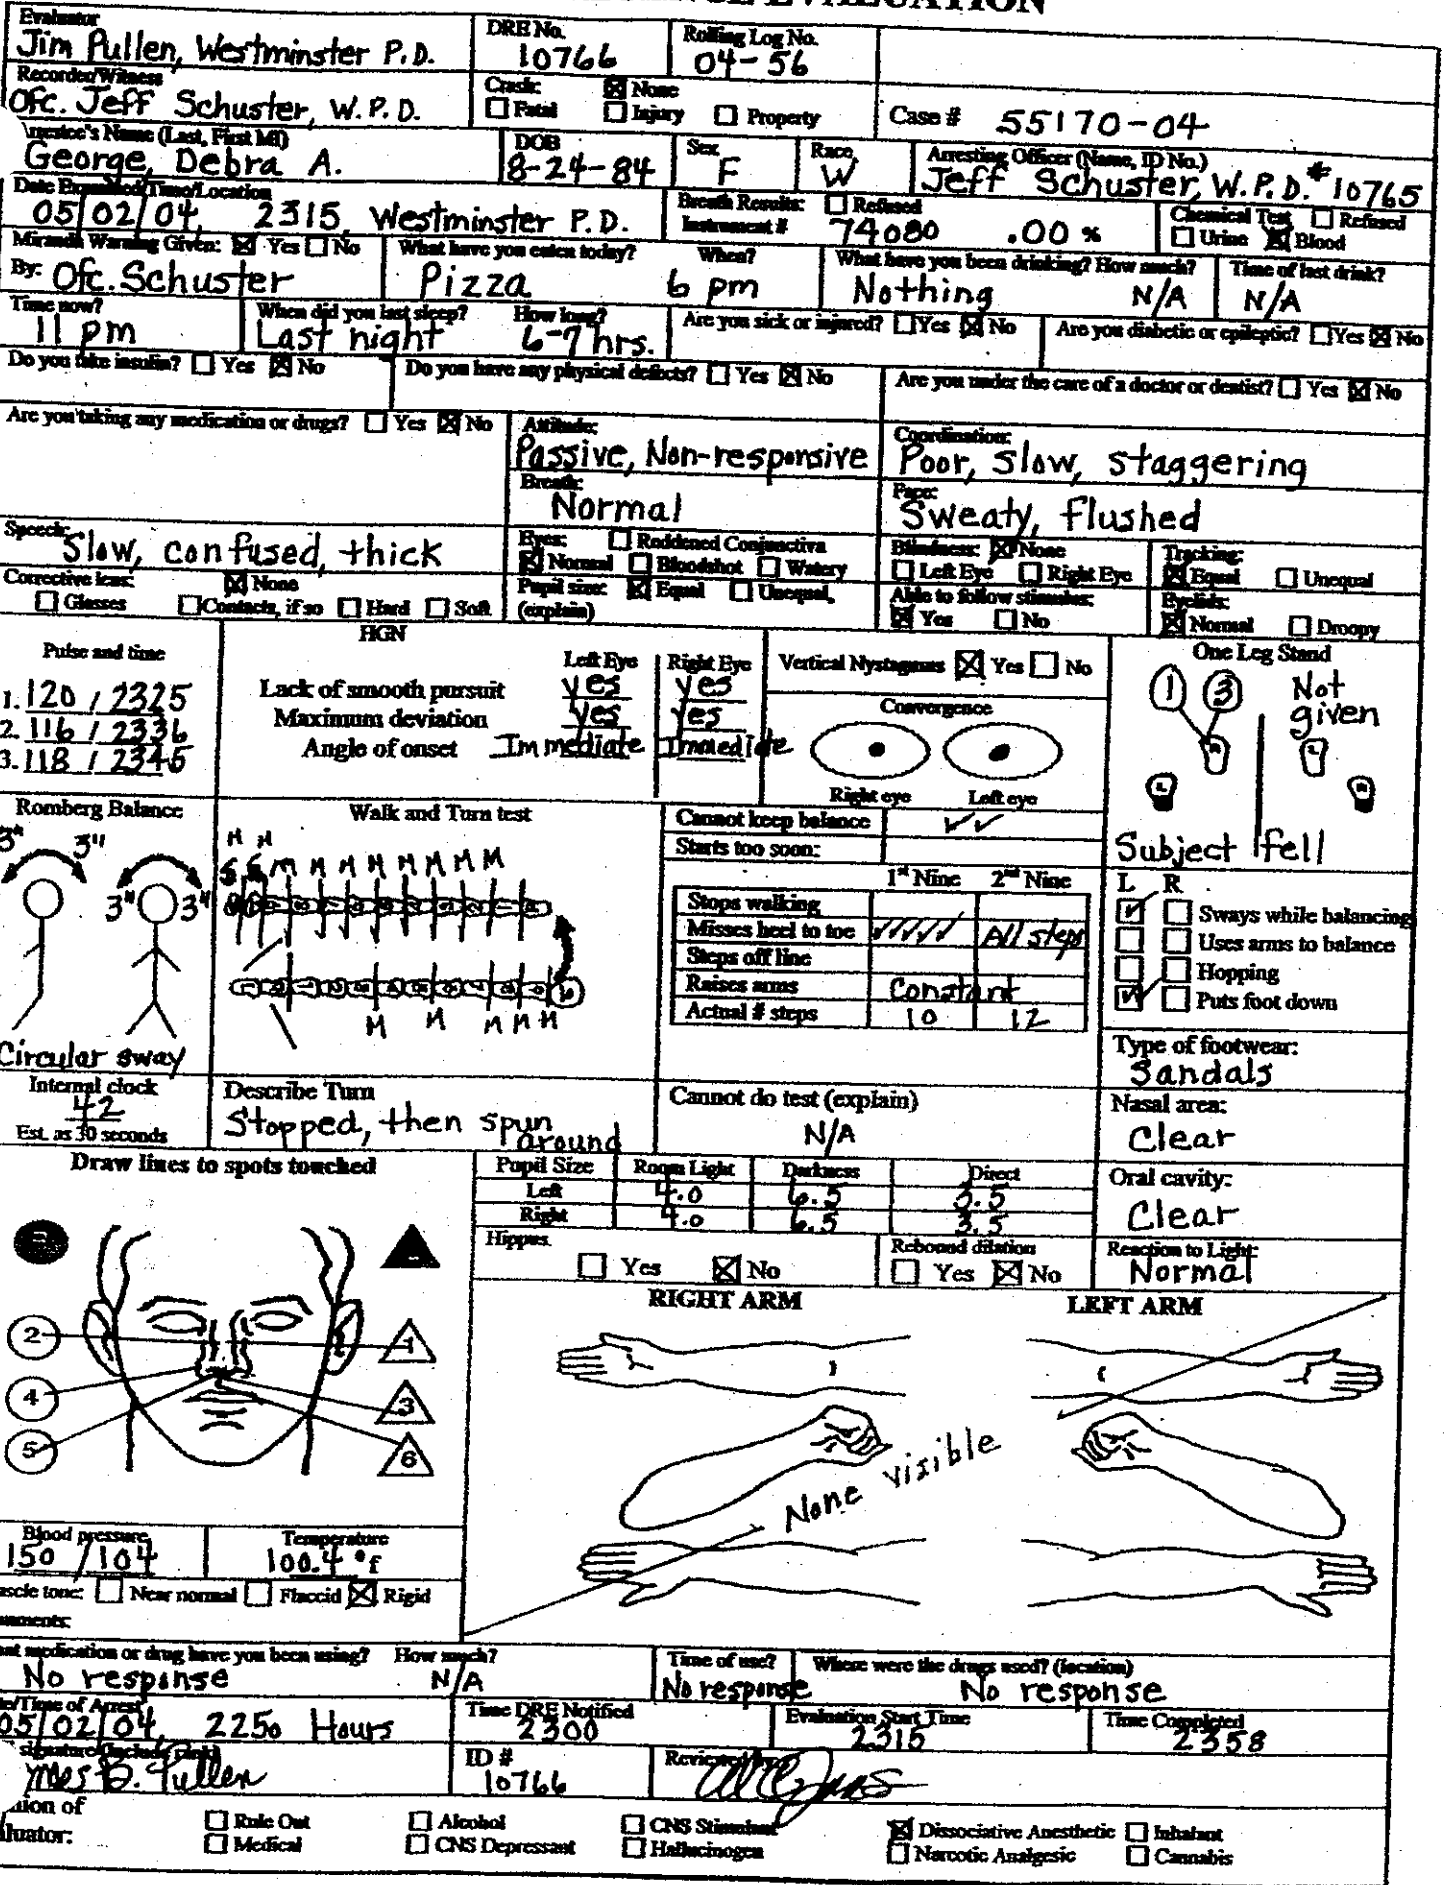 EVALUATION
Evaluator
Jim Pullen, Westminster P.D.
DRE No.
10766
Rolling Log No.
04-56
Recorder/Witness
Ofc. Jeff Schuster, W.P.D.
Crash: ☒ None
☐ Fatal ☐ Injury ☐ Property
Case # 55170-04
Arrestee's Name (Last, First MI)
George, Debra A.
DOB
8-24-84
Sex
F
Race
W
Arresting Officer (Name, ID No.)
Jeff Schuster, W.P.D. #10765
Date Examined/Time/Location
05/02/04, 2315, Westminster P.D.
Breath Results: ☐ Refused
Instrument # 74080 .00 %
Chemical Test ☐ Refused
☐ Urine ☒ Blood
Miranda Warning Given: ☒ Yes ☐ No
By: Ofc. Schuster
What have you eaten today? When?
Pizza 6 pm
What have you been drinking? How much?
Nothing N/A
Time of last drink?
N/A
Time now?
11 pm
When did you last sleep? How long?
Last night 6-7 hrs.
Are you sick or injured? ☐ Yes ☒ No
Are you diabetic or epileptic? ☐ Yes ☒ No
Do you take insulin? ☐ Yes ☒ No
Do you have any physical defects? ☐ Yes ☒ No
Are you under the care of a doctor or dentist? ☐ Yes ☒ No
Are you taking any medication or drugs? ☐ Yes ☒ No
Attitude:
Passive, Non-responsive
Coordination:
Poor, slow, staggering
Breath:
Normal
Face:
Sweaty, flushed
Speech:
Slow, confused, thick
Eyes: ☐ Reddened Conjunctiva
☒ Normal ☐ Bloodshot ☐ Watery
Blindness: ☒ None
☐ Left Eye ☐ Right Eye
Tracking:
☒ Equal ☐ Unequal
Corrective lens: ☒ None
☐ Glasses ☐ Contacts, if so ☐ Hard ☐ Soft
Pupil size: ☒ Equal ☐ Unequal,
(explain)
Able to follow stimulus:
☒ Yes ☐ No
Eyelids:
☒ Normal ☐ Droopy
Pulse and time
1. 120 / 2325
2. 116 / 2336
3. 118 / 2345
HGN
Left Eye Right Eye
Lack of smooth pursuit yes yes
Maximum deviation yes yes
Angle of onset Immediate Immediate
Vertical Nystagmus ☒ Yes ☐ No
Convergence
Right eye Left eye
One Leg Stand
1 3 Not given
Subject fell
L R
Sways while balancing
Uses arms to balance
Hopping
Puts foot down
Romberg Balance
3" 3"
3" 3"
Circular sway
Walk and Turn test
M M
S S M M M M M M M
M M M M M
Cannot keep balance ✓✓
Starts too soon:
1st Nine 2nd Nine
Stops walking
Misses heel to toe ✓✓✓✓✓ All steps
Steps off line
Raises arms Constant
Actual # steps 10 12
Type of footwear:
Sandals
Internal clock
42
Est. as 30 seconds
Describe Turn
Stopped, then spun around
Cannot do test (explain)
N/A
Nasal area:
Clear
Draw lines to spots touched
2 1
4 3
5 6
Pupil Size Room Light Darkness Direct
Left 4.0 6.5 3.5
Right 4.0 6.5 3.5
Oral cavity:
Clear
Hippus
☐ Yes ☒ No
Rebound dilation
☐ Yes ☒ No
Reaction to Light:
Normal
RIGHT ARM LEFT ARM
None visible
Blood pressure
150 / 104
Temperature
100.4 °f
Muscle tone: ☐ Near normal ☐ Flaccid ☒ Rigid
Comments:
What medication or drug have you been using? How much?
No response N/A
Time of use?
No response
Where were the drugs used? (location)
No response
Date/Time of Arrest
05/02/04, 2250 Hours
Time DRE Notified
2300
Evaluation Start Time
2315
Time Completed
2358
signature (Include rank)
James D. Pullen
ID #
10766
Reviewed by:
Opinion of
Evaluator:
☐ Rule Out ☐ Alcohol ☐ CNS Stimulant ☒ Dissociative Anesthetic ☐ Inhalant
☐ Medical ☐ CNS Depressant ☐ Hallucinogen ☐ Narcotic Analgesic ☐ Cannabis